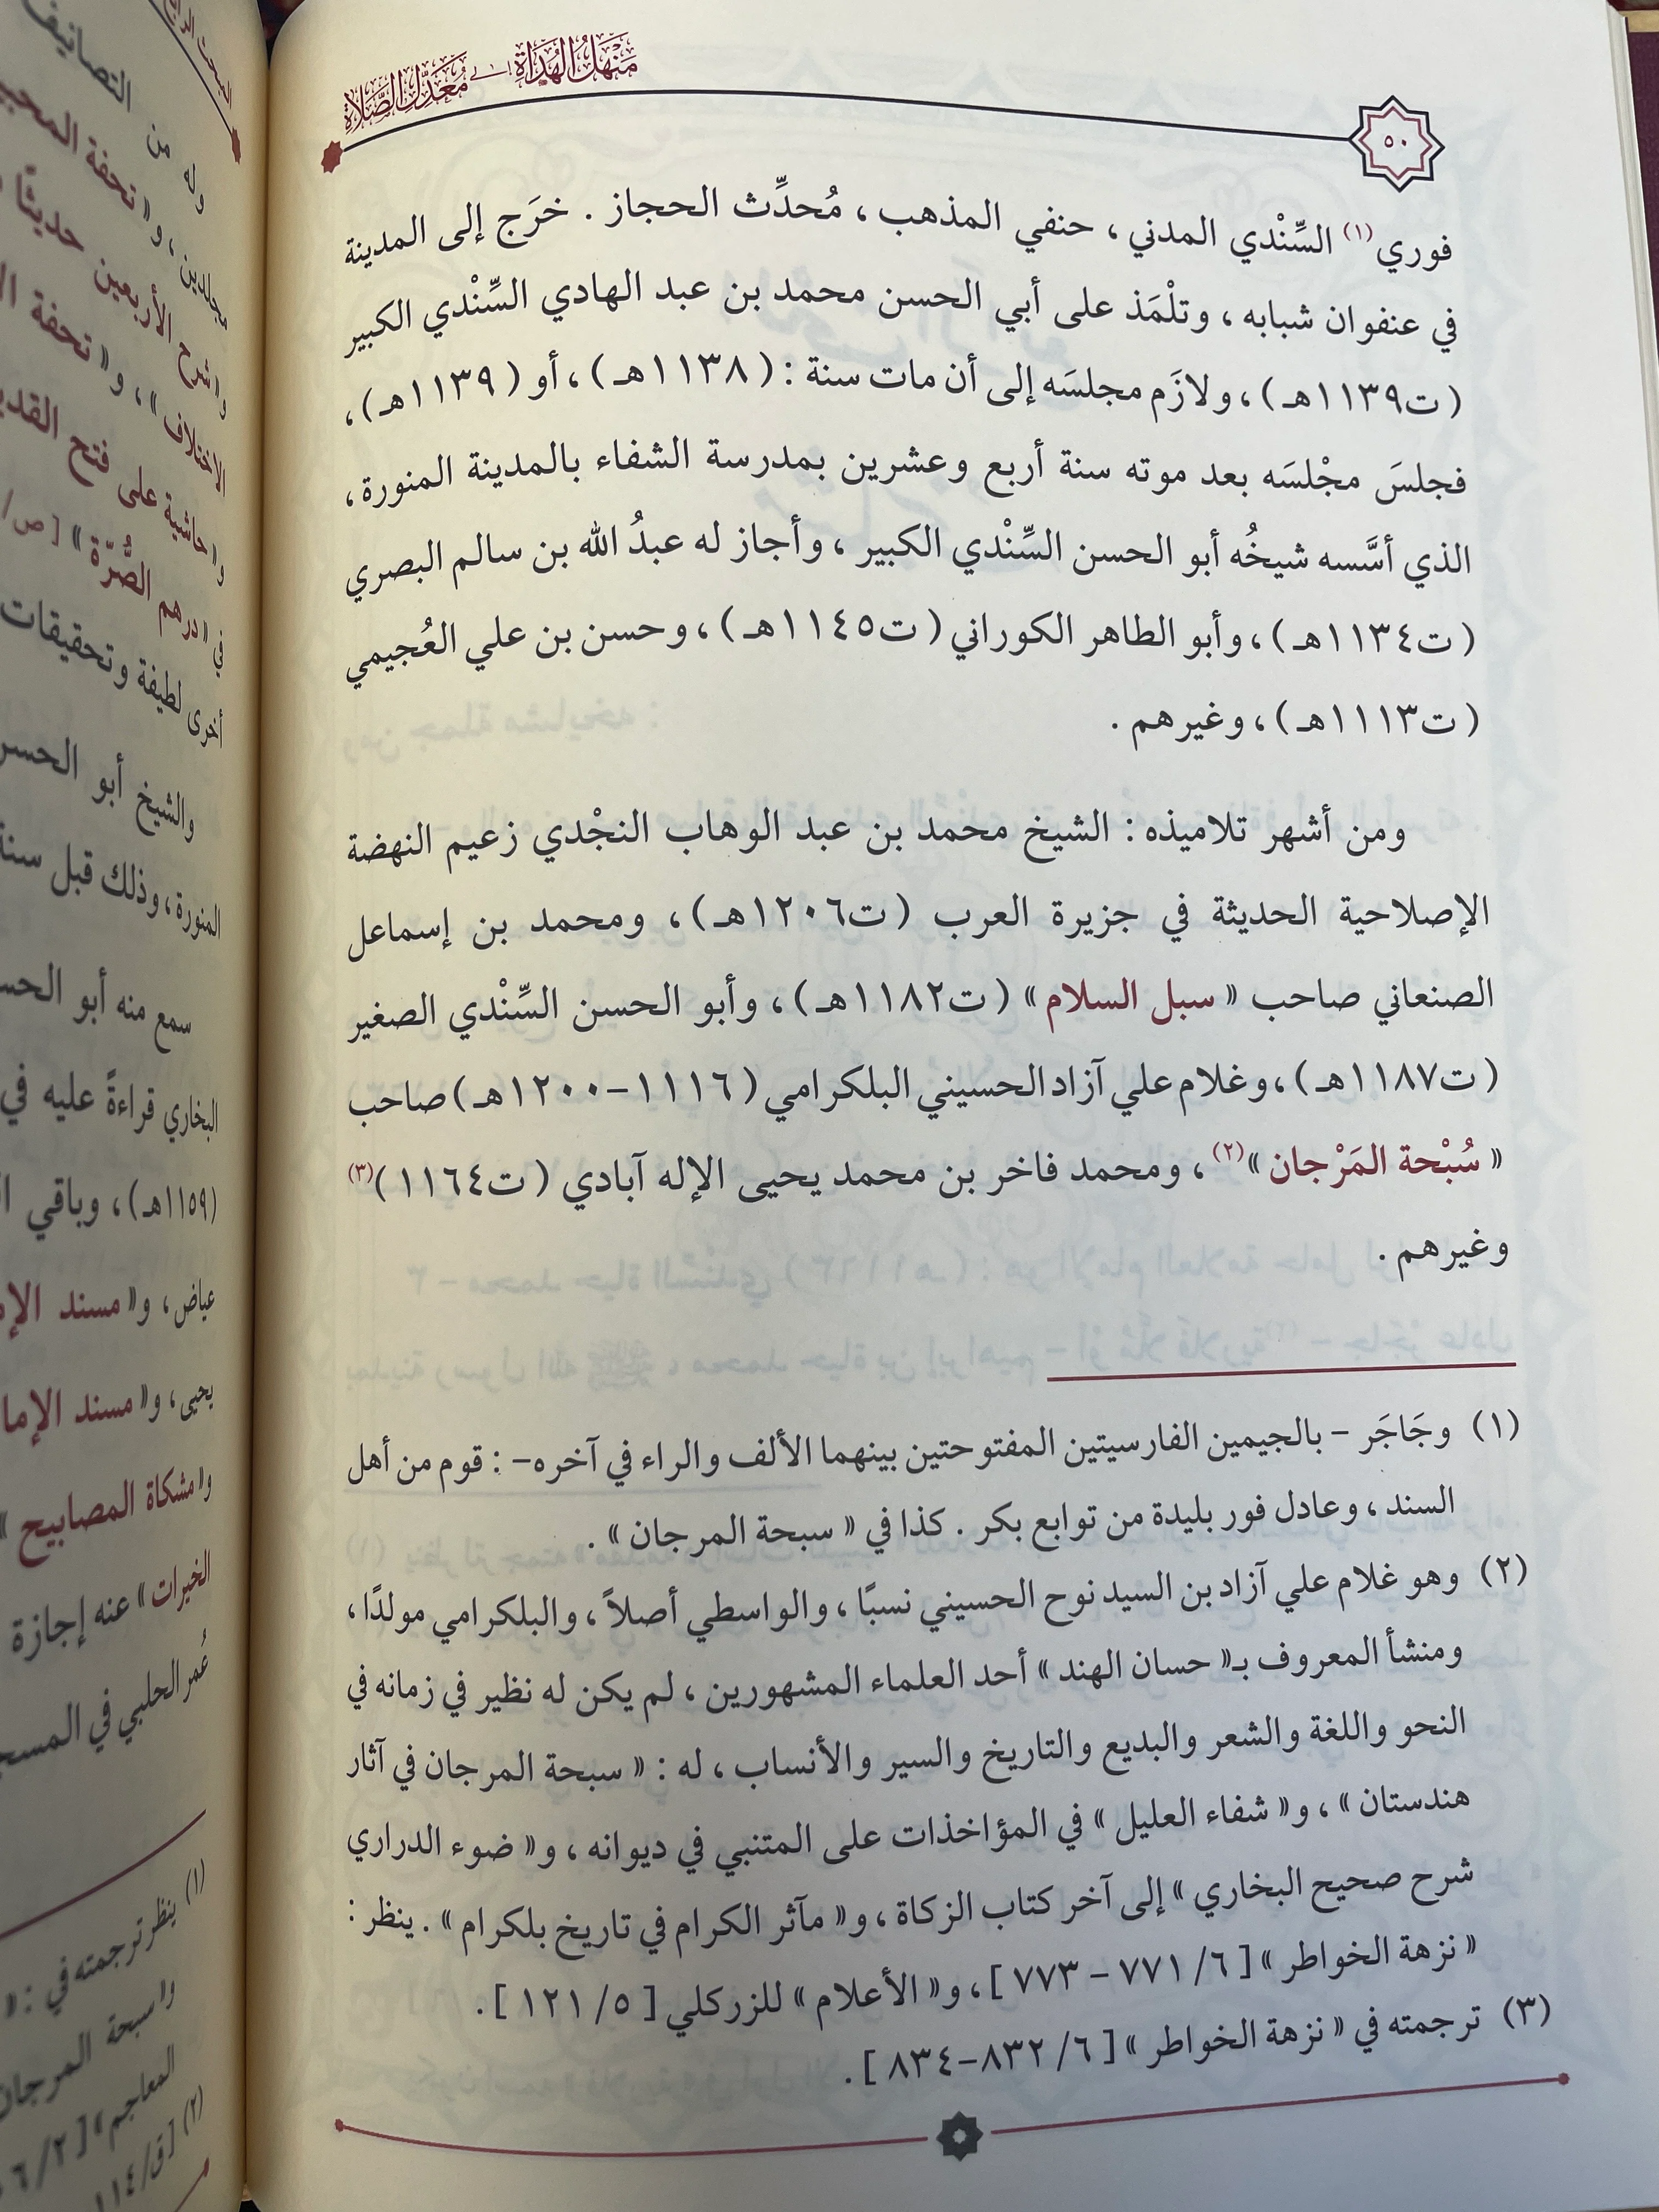 مَنْهَلُ الهُدَاةِ إلى مُعَدِّلِ الصَّلَاةِ
٥٠
فوري(١) السِّنْدي المدني ، حنفي المذهب ، مُحدِّث الحجاز . خرَج إلى المدينة
في عنفوان شبابه ، وتلْمَذ على أبي الحسن محمد بن عبد الهادي السِّنْدي الكبير
( ت١١٣٩هـ ) ، ولازَم مجلسَه إلى أن مات سنة : ( ١١٣٨هـ ) ، أو ( ١١٣٩هـ ) ،
فجلسَ مجْلسَه بعد موته سنة أربع وعشرين بمدرسة الشفاء بالمدينة المنورة ،
الذي أسَّسه شيخُه أبو الحسن السِّنْدي الكبير ، وأجاز له عبدُ الله بن سالم البصري
( ت١١٣٤هـ ) ، وأبو الطاهر الكوراني ( ت١١٤٥هـ ) ، وحسن بن علي العُجيمي
( ت١١١٣هـ ) ، وغيرهم .
ومن أشهر تلاميذه : الشيخ محمد بن عبد الوهاب النجْدي زعيم النهضة
الإصلاحية الحديثة في جزيرة العرب ( ت١٢٠٦هـ ) ، ومحمد بن إسماعل
الصنعاني صاحب « سبل السلام » ( ت١١٨٢هـ ) ، وأبو الحسن السِّنْدي الصغير
( ت١١٨٧هـ ) ، وغلام علي آزاد الحسيني البلكرامي ( ١١١٦–١٢٠٠هـ ) صاحب
« سُبْحة المَرْجان »(٢) ، ومحمد فاخر بن محمد يحيى الإله آبادي ( ت١١٦٤ )(٣)
وغيرهم .
(١) وجَاجَر – بالجيمين الفارسيتين المفتوحتين بينهما الألف والراء في آخره– : قوم من أهل
السند ، وعادل فور بليدة من توابع بكر . كذا في « سبحة المرجان » .
(٢) وهو غلام علي آزاد بن السيد نوح الحسيني نسبًا ، والواسطي أصلاً ، والبلكرامي مولدًا ،
ومنشأ المعروف بـ« حسان الهند » أحد العلماء المشهورين ، لم يكن له نظير في زمانه في
النحو واللغة والشعر والبديع والتاريخ والسير والأنساب ، له : « سبحة المرجان في آثار
هندستان » ، و« شفاء العليل » في المؤاخذات على المتنبي في ديوانه ، و« ضوء الدراري
شرح صحيح البخاري » إلى آخر كتاب الزكاة ، و« مآثر الكرام في تاريخ بلكرام » . ينظر :
« نزهة الخواطر » [ ٦/ ٧٧١ – ٧٧٣ ] ، و« الأعلام » للزركلي [ ٥/ ١٢١ ] .
(٣) ترجمته في « نزهة الخواطر » [ ٦/ ٨٣٢–٨٣٤ ] .
وله من التصانيف
مجلدين ، و« تحفة
و« شرح الأربعين حديثًا
الاختلاف » ، و« تحفة
و« حاشية على فتح
في « درهم الصُّرّة » [ ص/
أخرى لطيفة وتحقيقات
والشيخ أبو
المنورة ، وذلك قبل سنة
سمع منه أبو
البخاري قراءةً عليه في
(١١٥٩هـ) ، وباقي
عياض ، و« مسند
يحيى ، و« مسند
و« مشكاة المصابيح »
الخيرات » عنه إجازة
عُمر الحلبي في
(١) ينظر ترجمته في : «
و« سبحة
المعاجم » [ ٢/
(٢) [ق/١١٤